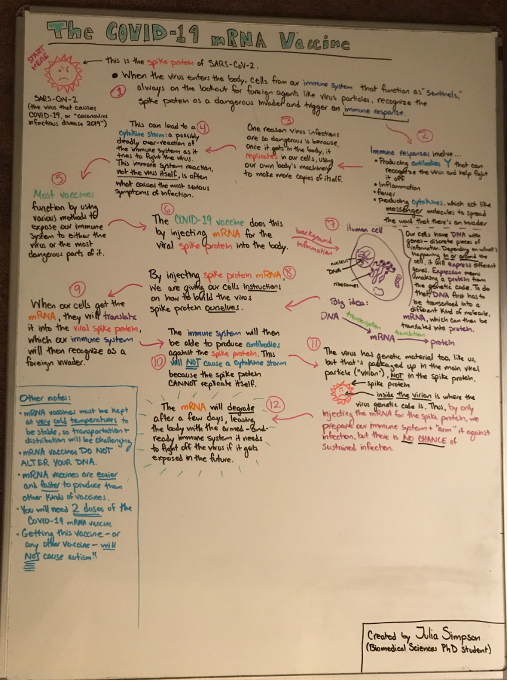 The COVID-19 mRNA Vaccine
START HERE
This is the spike protein of SARS-CoV-2.
SARS-CoV-2
(the virus that causes
COVID-19, or "coronavirus
infectious disease 2019")
① • When the virus enters the body, cells from our immune system that function as "sentinels,"
always on the lookout for foreign agents like virus particles, recognize the
spike protein as a dangerous invader and trigger an immune response.
②
Immune responses involve...
• Producing antibodies Y that can
recognize the virus and help fight
it off
• Inflammation
• Fever
• Producing cytokines, which act like
messenger molecules to spread
the word that there's an invader
③
One reason virus infections
are so dangerous is because,
once it gets in the body, it
replicates in our cells, using
our own body's machinery
to make more copies of itself.
This can lead to a ④
cytokine storm: a possibly
deadly over-reaction of
the immune system as it
tries to fight the virus.
This immune system reaction,
not the virus itself, is often
what causes the most serious
symptoms of infection.
⑤
Most vaccines
function by using
various methods to
expose our immune
system to either the
virus or the most
dangerous parts of it.
⑥
The COVID-19 vaccine does this
by injecting mRNA for the
viral spike protein into the body.
background
information
⑦
Human cell
nucleus
DNA
ribosomes
Our cells have DNA with
genes - discrete pieces of
information. Depending on what's
happening in or around the
cell, it will express different
genes. Expression means
making a protein from
the genetic code. To do
that, DNA first has to
be transcribed into a
different kind of molecule,
mRNA, which can then be
translated into protein.
Big idea:
DNA
transcription
mRNA
translation
protein
By injecting spike protein mRNA, ⑧
we are giving our cells instructions
on how to build the virus
spike protein ourselves.
⑨
When our cells get the
mRNA, they will translate
it into the viral spike protein,
which our immune system
will then recognize as a
foreign invader!
⑩
The immune system will then
be able to produce antibodies
against the spike protein. This
will NOT cause a cytokine storm
because the spike protein
CANNOT replicate itself.
⑪
The virus has genetic material too, like us,
but that's packaged up in the main viral
particle ("virion"), NOT in the spike protein.
spike protein
inside the virion is where the
virus genetic code is. Thus, by only
injecting the mRNA for the spike protein, we
prepare our immune system + "arm" it against
infection, but there is NO CHANCE of
sustained infection.
⑫
The mRNA will degrade
after a few days, leaving
the body with the armed-and-
ready immune system it needs
to fight off the virus if it gets
exposed in the future.
Other notes:
• mRNA vaccines must be kept
at very cold temperatures to
be stable, so transportation +
distribution will be challenging.
• mRNA vaccines DO NOT
ALTER YOUR DNA.
• mRNA vaccines are easier
and faster to produce than
other kinds of vaccines.
• You will need 2 doses of the
COVID-19 mRNA vaccine
• Getting this vaccine - or
any other vaccine - will
NOT cause autism!!
Created by Julia Simpson
(Biomedical Sciences PhD Student)